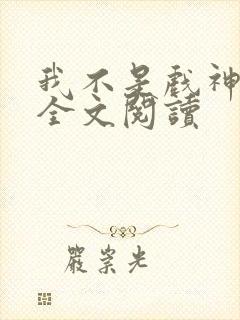 我不是戲神
全文閱讀
嚴崇光